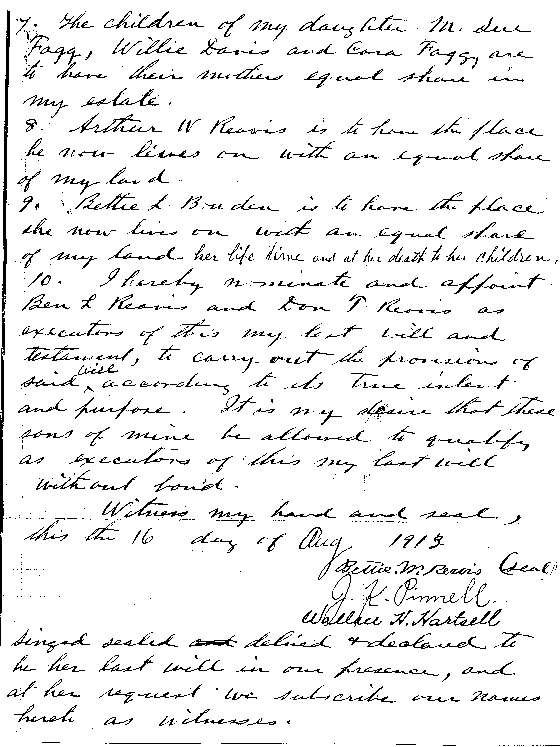 7. The children of my daughter M. Sue
Fagg, Willie Davis and Cora Fagg, are
to have their mothers equal share in
my estate.
8. Arthur W Reavis is to have the place
he now lives on with an equal share
of my land.
9. Bettie L. Burden is to have the place
she now lives on with an equal share
of my land her life time and at her death to her children.
10. I hereby nominate and appoint
Ben L Reavis and Don T Reavis as
executors of this my last will and
testament, to carry out the provisions of
said will according to its true intent
and purpose. It is my desire that these
sons of mine be allowed to qualify
as executors of this my last will
without bond.
Witness my hand and seal,
this the 16 day of Aug 1912
Bettie M. Reavis (seal)
J. K. Pinnell.
Wallace H. Hartsell
singed sealed and delired & declared to
be her last will in our presence, and
at her request we subscribe our names
hereto as witnesses.